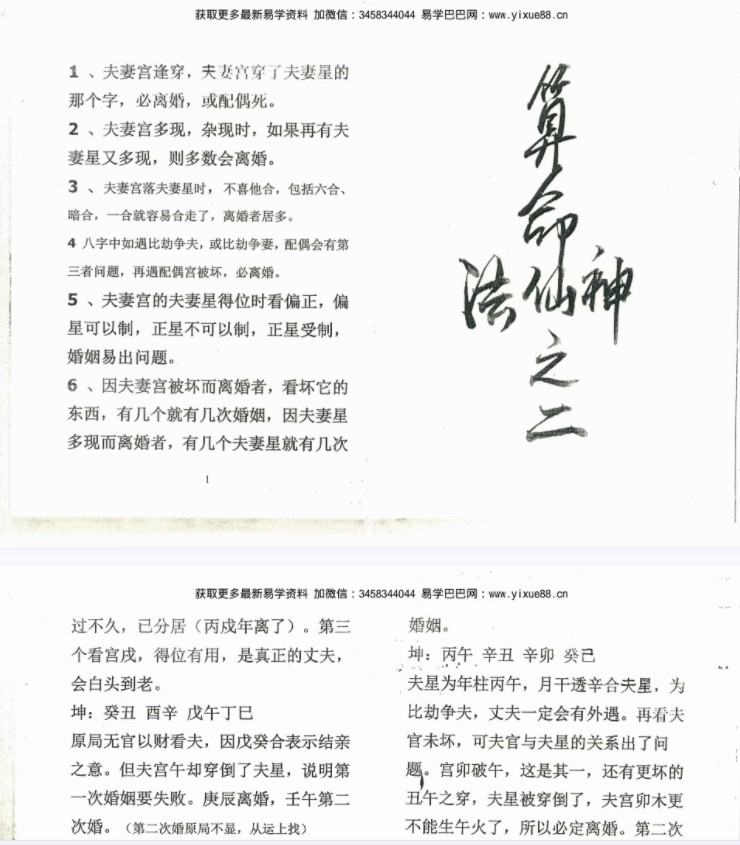 获取更多最新易学资料 加微信：3458344044 易学巴巴网：www.yixue88.cn
1 、夫妻宫逢穿，夫妻宫穿了夫妻星的
那个字，必离婚，或配偶死。
2 、夫妻宫多现，杂现时，如果再有夫
妻星又多现，则多数会离婚。
3 、夫妻宫落夫妻星时，不喜他合，包括六合、
暗合，一合就容易合走了，离婚者居多。
4 八字中如遇比劫争夫，或比劫争妻，配偶会有第
三者问题，再遇配偶宫被坏，必离婚。
5 、夫妻宫的夫妻星得位时看偏正，偏
星可以制，正星不可以制，正星受制，
婚姻易出问题。
6 、因夫妻宫被坏而离婚者，看坏它的
东西，有几个就有几次婚姻，因夫妻星
多现而离婚者，有几个夫妻星就有几次
1
算命
神仙法
之二
获取更多最新易学资料 加微信：3458344044 易学巴巴网：www.yixue88.cn
过不久，已分居（丙戌年离了）。第三
个看宫戌，得位有用，是真正的丈夫，
会白头到老。
坤：癸丑 酉辛 戊午丁巳
原局无官以财看夫，因戊癸合表示结亲
之意。但夫宫午却穿倒了夫星，说明第
一次婚姻要失败。庚辰离婚，壬午第二
次婚。（第二次婚原局不显，从运上找）
婚姻。
坤：丙午 辛丑 辛卯 癸己
夫星为年柱丙午，月干透辛合夫星，为
比劫争夫，丈夫一定会有外遇。再看夫
官未坏，可夫官与夫星的关系出了问
题。宫卯破午，这是其一，还有更坏的
丑午之穿，夫星被穿倒了，夫宫卯木更
不能生午火了，所以必定离婚。第二次